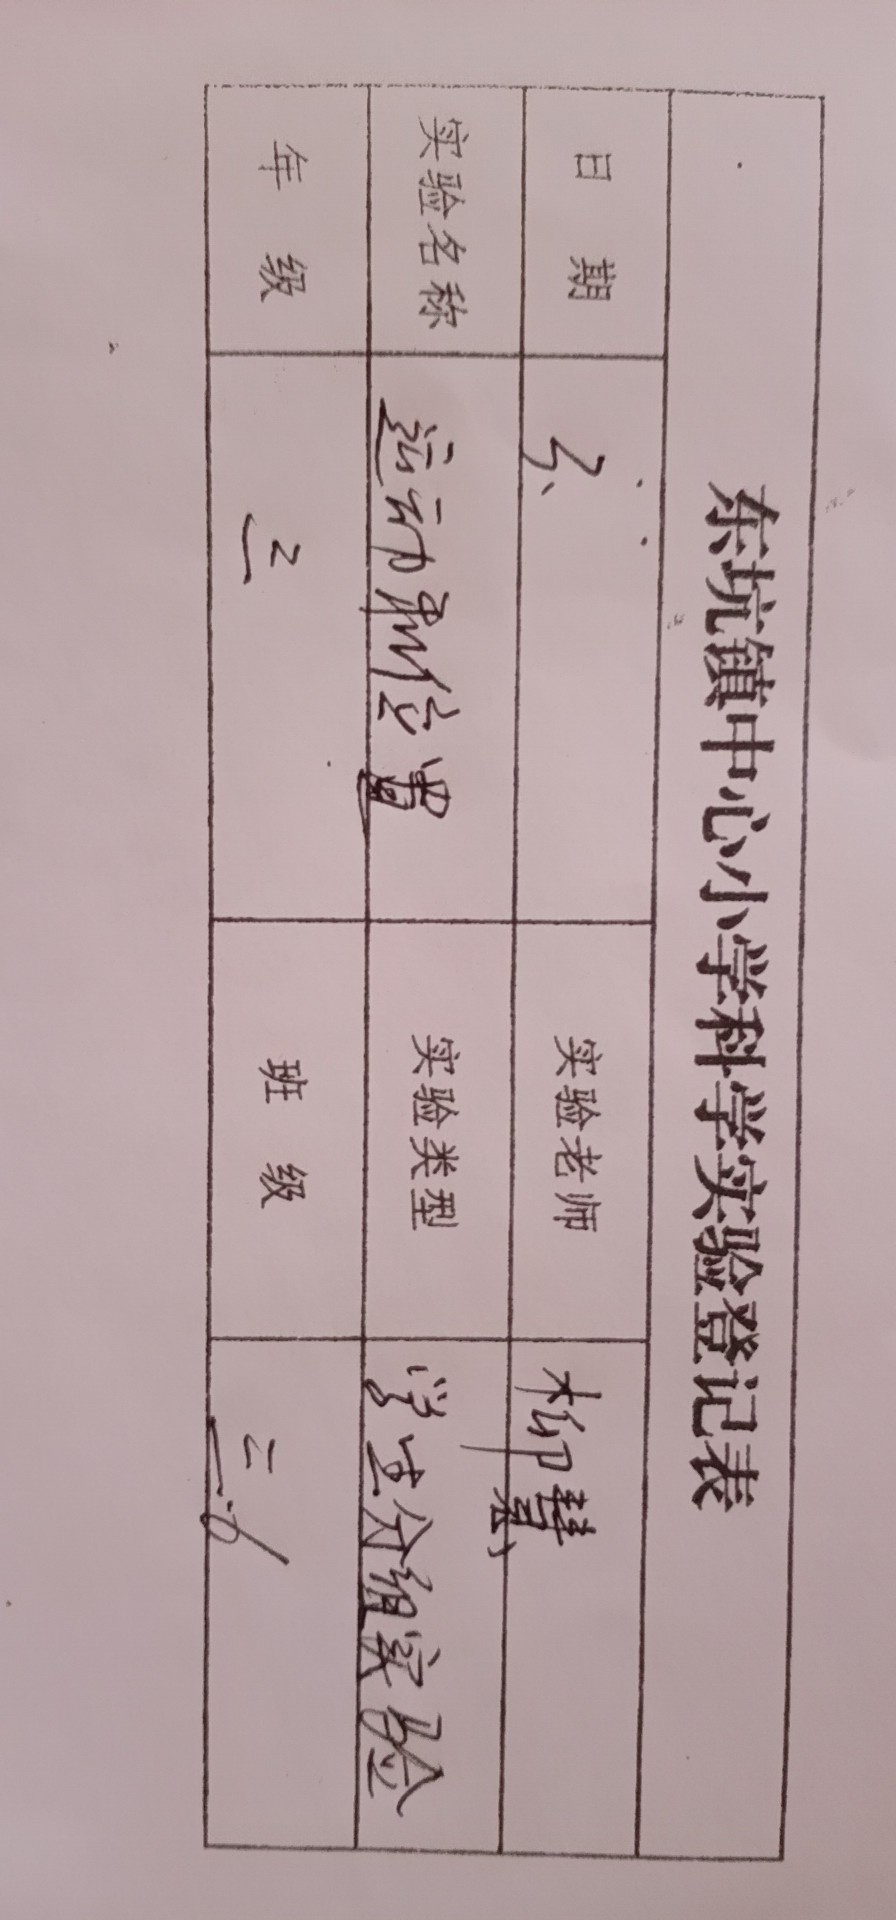 东坑镇中心小学科学实验登记表
日 期 3、 实验老师 柳慧
实验名称 运动和位置 实验类型 学生分组实验
年 级 三 班 级 三.6